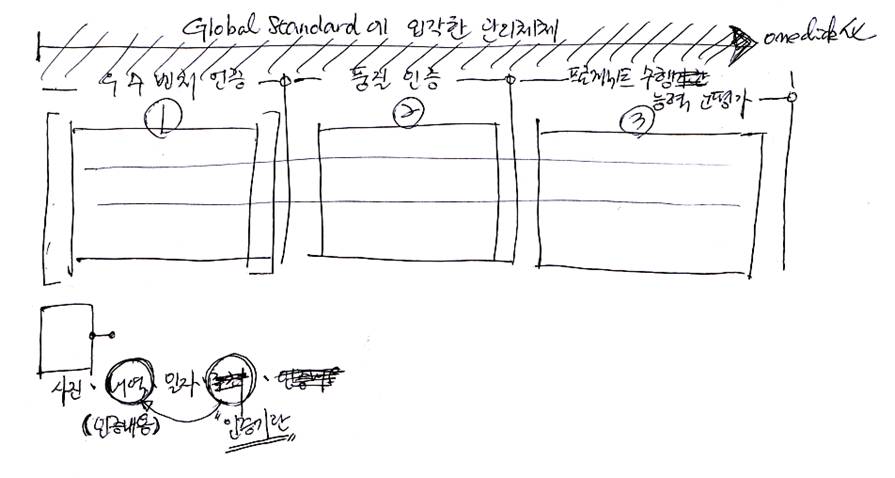 Global Standard에 입각한 관리체제
oneclick 化
우수 벤처 인증
품질 인증
프로젝트 수행
능력 평가
1
2
3
사진、내역、일자、
(인증내용)
"인증기관"